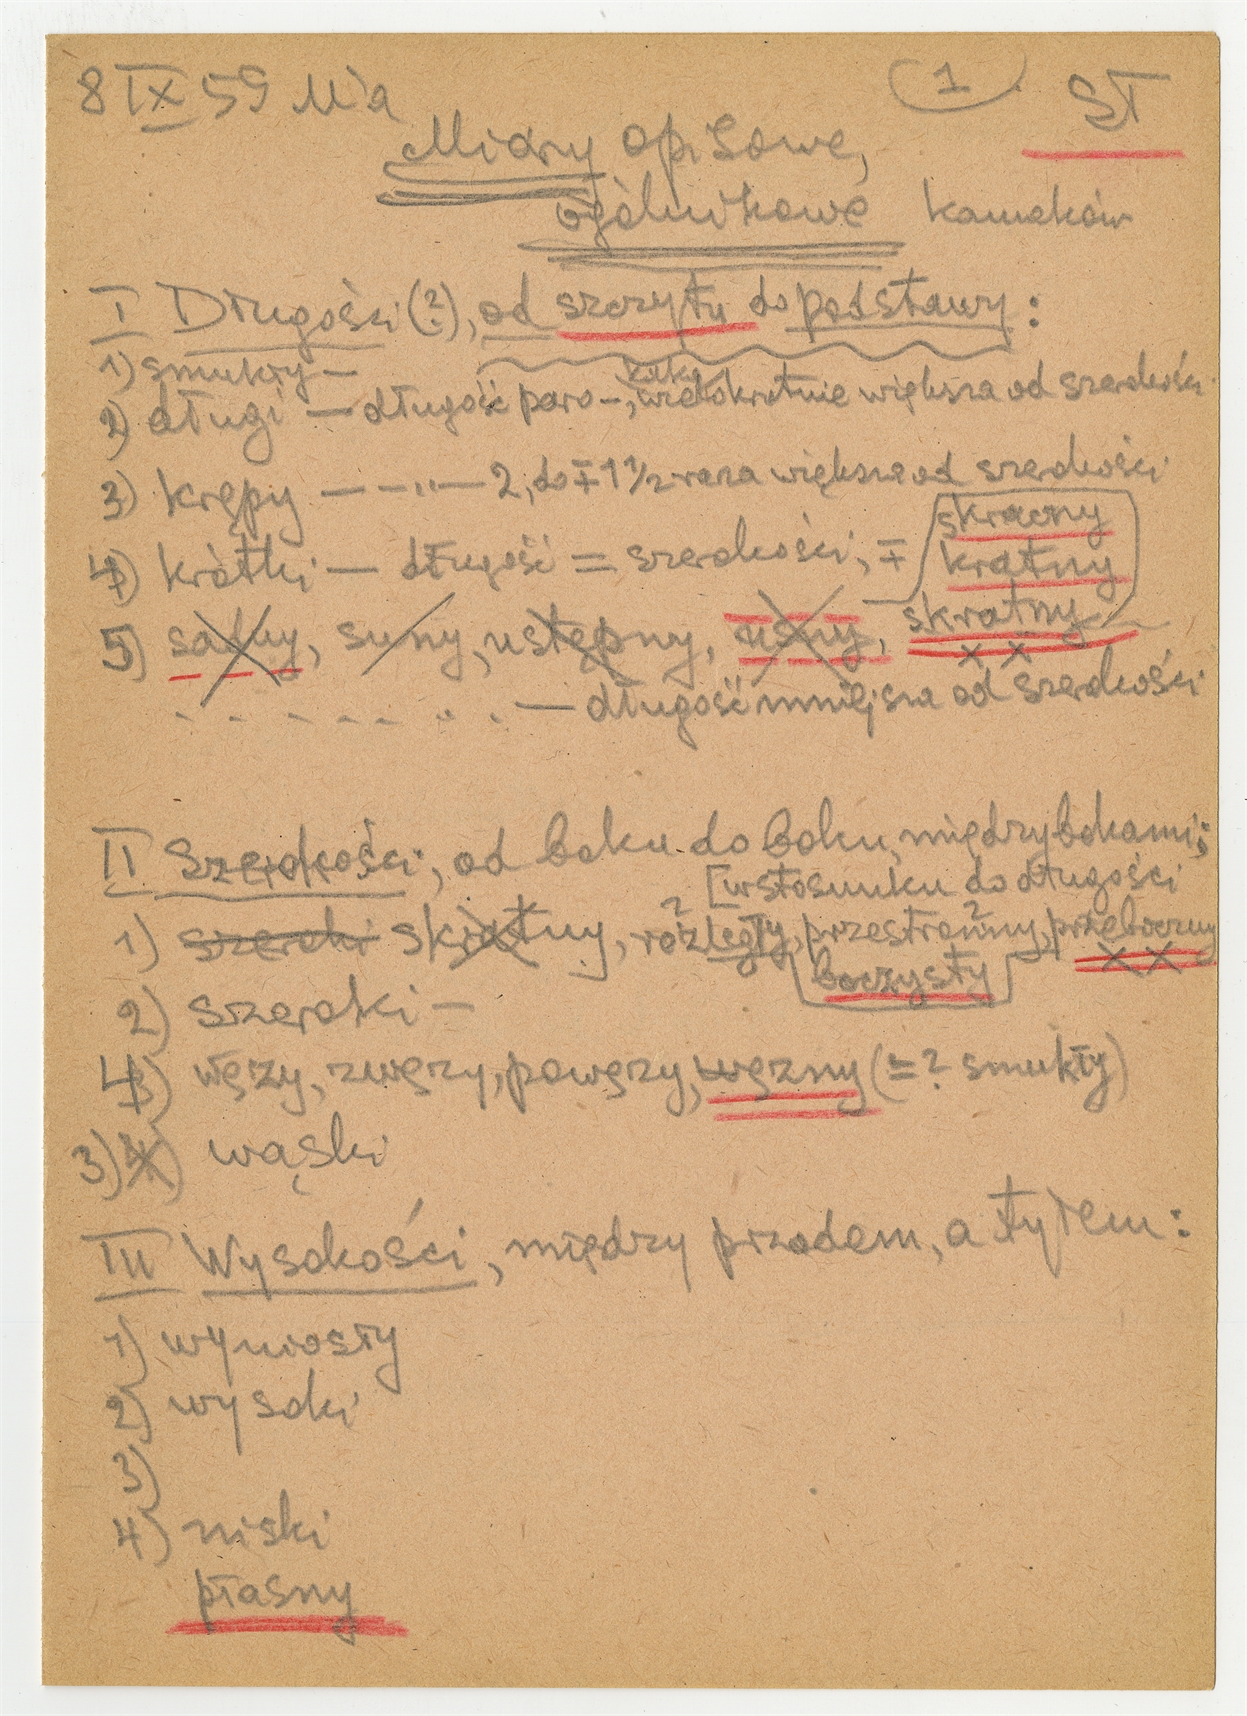 8 IX 59 M'a
1
ST
Miary opisowe,
ogólnikowe kamieków
I Długości (?), od szczytu do podstawy:
1) smukły —
2) długi — długość paro-, kilku, wielokrotnie większa od szerokości
3) krępy — - " — 2, do ∓ 1 1/2 raza większa od szerokości
4) krótki — długość = szerokości, ∓
skraczny
kratny
skratny
5) sąkny, suny, ustępny, uszny,
. - . - - - . . . — długość mniejsza od szerokości
II Szerokości, od boku do boku, między bokami;
[w stosunku do długości
1) szeroki skratny, rozległy, ? przestronny, ? przeboczny
boczysty
2) szeroki —
4) węzy, zwęzy, powęzy, węzny (=? smukły)
3) wąski
III Wysokości, między przodem, a tyłem:
1) wyniosły
2) wysoki
3)
4) niski
płasny